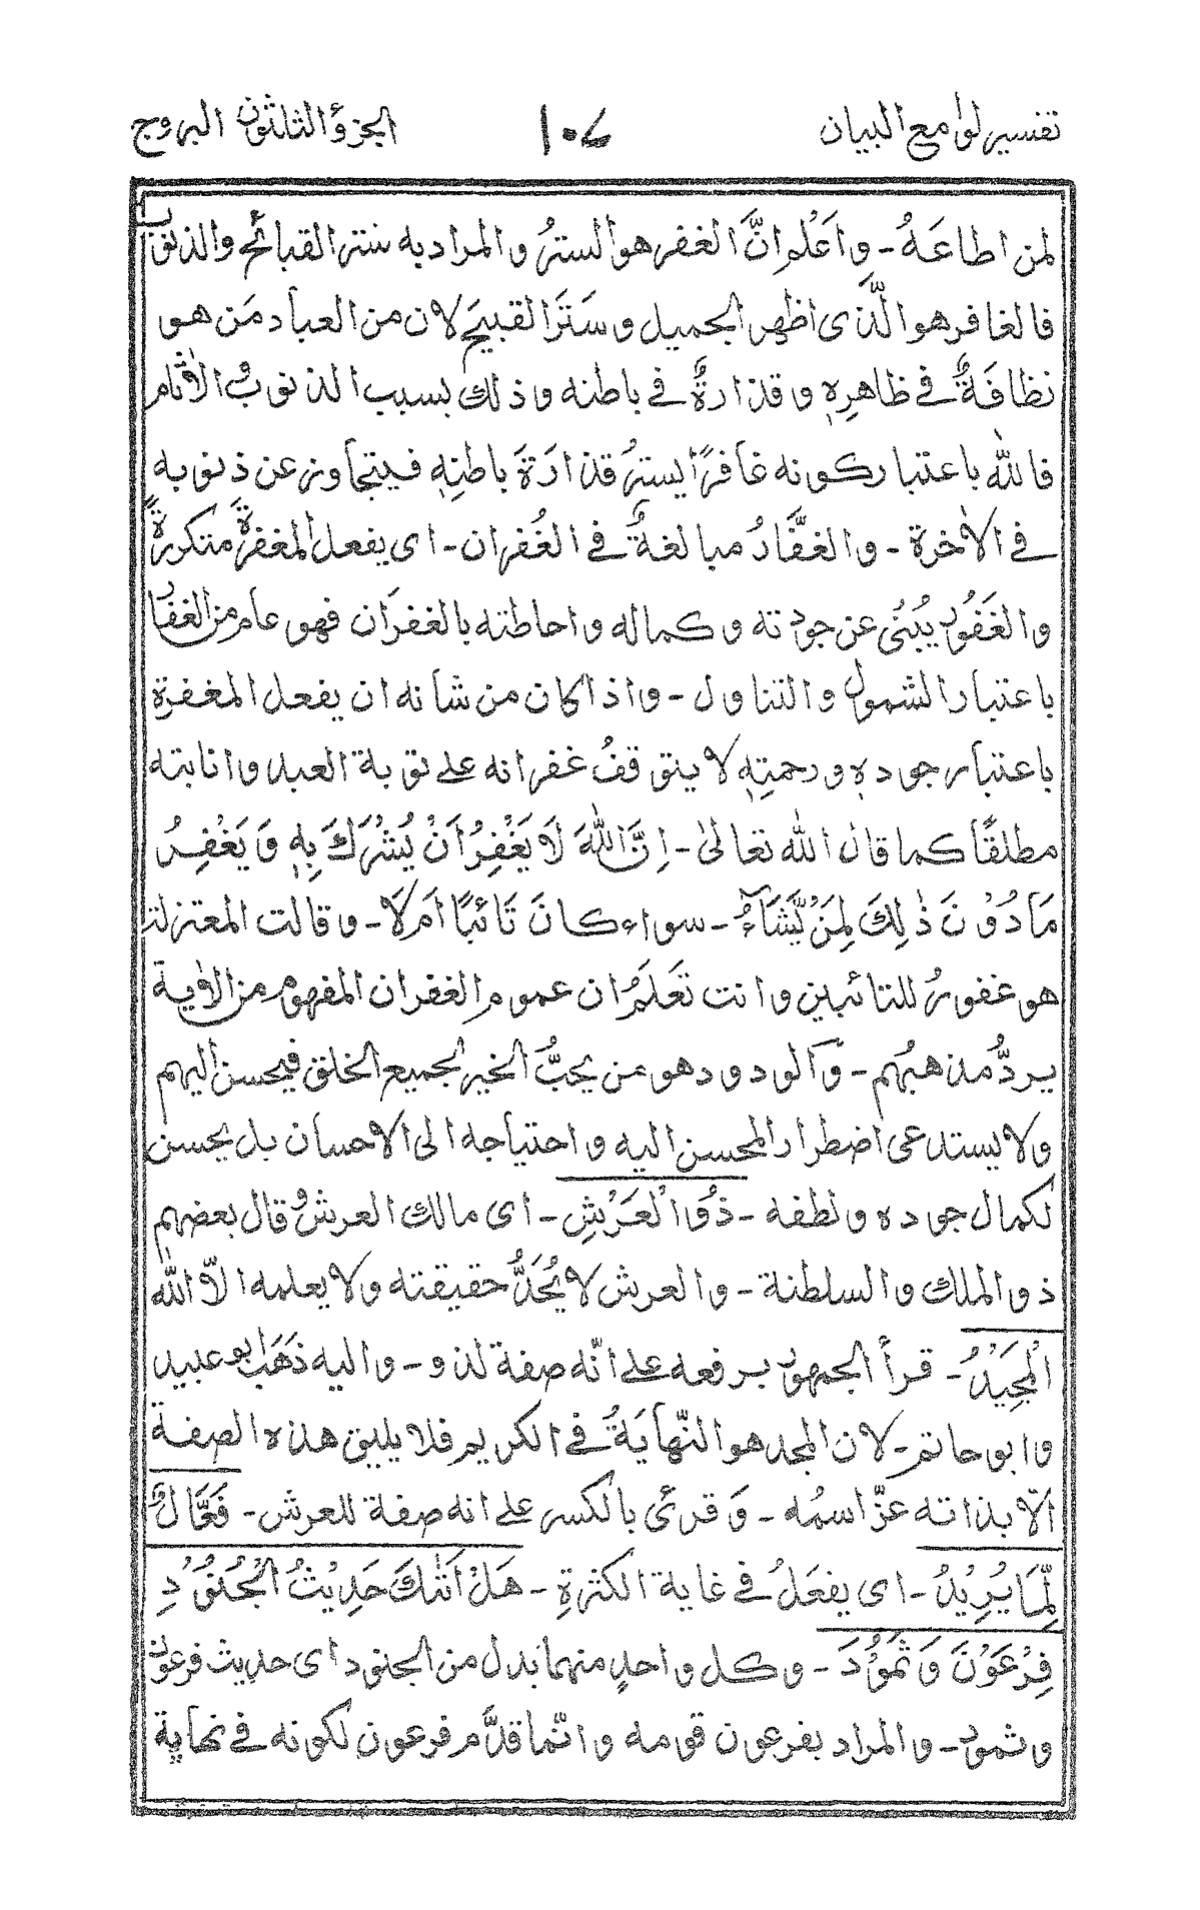 تفسير لوامع البيان ١٠٧ الجزؤ الثلثون البروج
لمن اطاعَهُ - واعْلم انَّ الغفر هو السترُ والمراد به ستر القبائح والذنوب
فالغافر هو الَّذى اظهر الجميل وسَتَرَ القبيحَ لان من العباد مَن هو
نظافَةٌ فى ظاهرِهٖ وقذارةٌ فى باطنه وذلك بسبب الذنوب والاٰثام
فاللّٰه باعتبار كونه غافرًا يسترُ قذارَةَ باطنِهٖ فيتجاوز عن ذنوبه
فى الاٰخرة - والغفَّارُ مبالغةٌ فى الغُفران - اى يفعل المغفرةَ متكررةً
والغَفُورُ يُنْبئى عن جودته وكماله واحاطته بالغفرَان فهو عام من الغفار
باعتبار الشمول والتناول - واذا كان من شانه ان يفعل المغفرة
باعتبار جودهٖ ورحمتِهٖ لا يتوقفُ غفرانه على توبة العبد وانابته
مطلقًا كما قال اللّٰه تعالىٰ - اِنَّ اللّٰهَ لَا يَغْفِرُ اَنْ يُشْرَكَ بِهٖ وَيَغْفِرُ
مَا دُوْنَ ذٰلِكَ لِمَنْ يَّشَآءُ - سواء كانَ تَائبًا امْ لَا - وقالت المعتزلة
هو غفورٌ للتائبين وانت تَعلَمُ ان عموم الغفران المفهوم من الاٰية
يردُّ مذهبَهم - وَالودود هو من يحبُّ الخير لجميع الخلق فيحسن اليهم
ولا يستدعى اضطرار المحسن اليه واحتياجه الى الاحسان بل يحسن
لكمال جوده ولطفه - ذُو الْعَرْشِ - اى مالك العرش وقال بعضهم
ذو الملك والسلطنة - والعرش لا يُحَدُّ حقيقته ولا يعلمه الّا اللّٰه
الْمَجِيْدُ - قرأ الجمهور برفعه على انّه صفة لذو - واليه ذَهَبَ ابو عبيد
وابو حاتم - لان المجد هو النّهايَةُ فى الكريم فلا يليق هذه الصفة
اَلّا بذاته عزّ اسمُه - وَقرئى بالكسر على انه صفة للعرش - فَعَّالٌ
لِّمَا يُرِيْدُ - اى يفعَلُ فى غاية الكثرةِ - هَلْ اَتٰىكَ حَدِيْثُ الْجُنُوْدِ
فِرْعَوْنَ وَثَمُوْدَ - وكل واحدٍ منهما بدل من الجنود اى حديث فرعون
وثمود - والمراد بفرعون قومه وانّما قدَّم فرعون لكونه فى نهاية